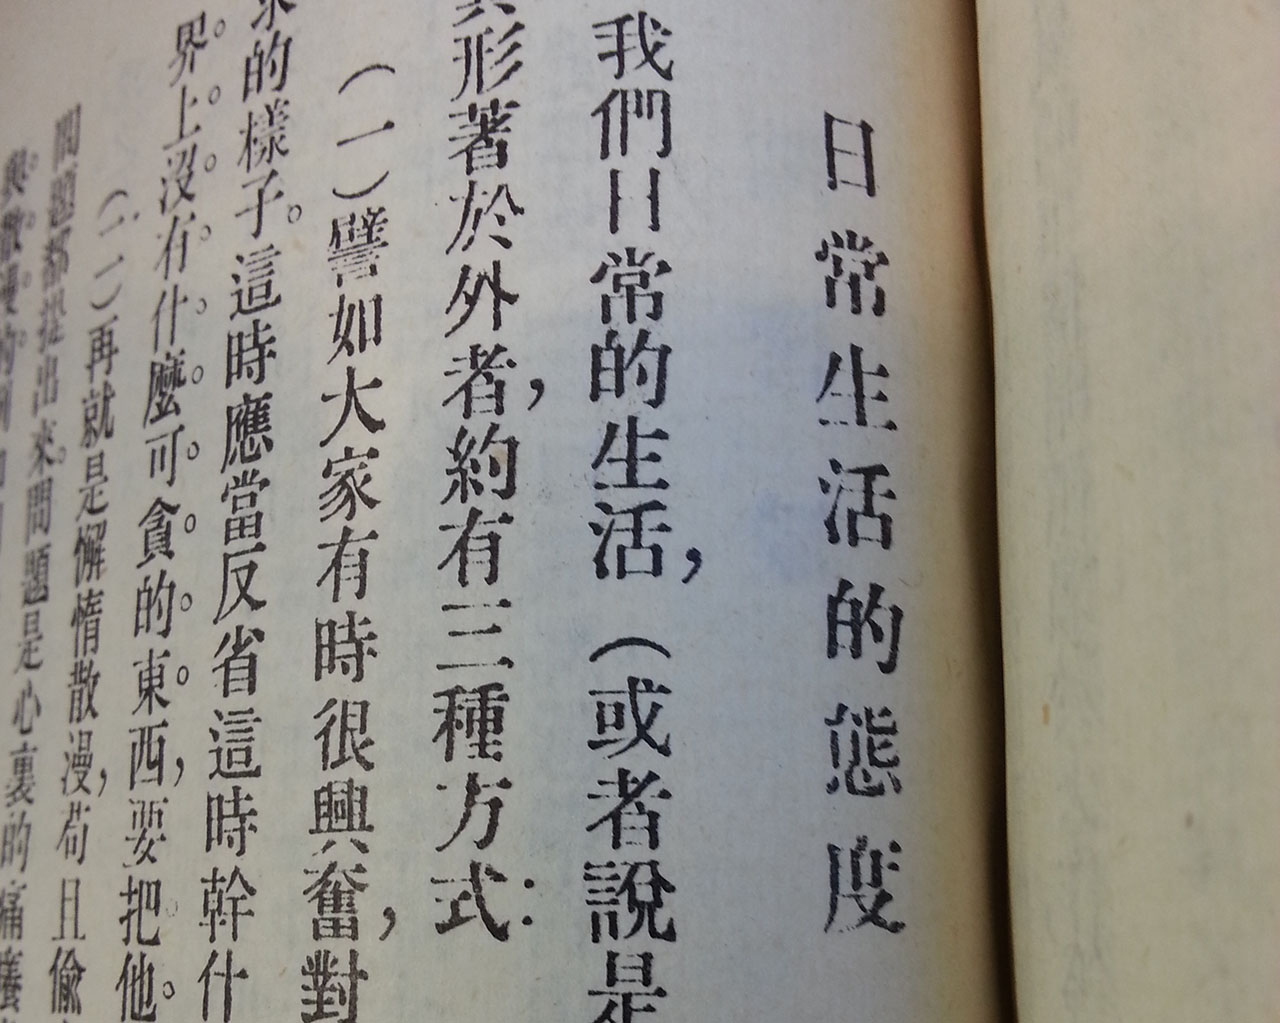 日常生活的態度
我們日常的生活，（或者說是
形著於外者，約有三種方式：
（一）譬如大家有時很興奮，對
的樣子。這時應當反省這時幹什
界上沒有什麼可貪的東西，要把他
（二）再就是懈惰散漫，苟且偷
問題都提出來。問題是心裏的痛癢
與散漫的